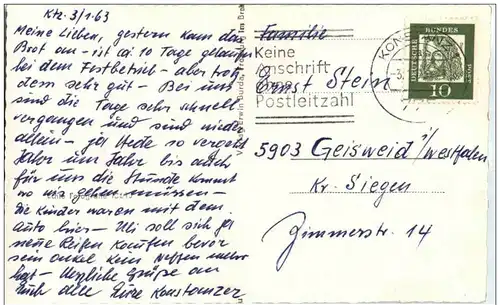 Ktz. 3/1.63
Meine Lieben, gestern kam das
Brot an – ist ca. 10 Tage gelaufen
bei dem Festbetrieb – aber trotz-
dem sehr gut – Bei uns
sind die Tage sehr schnell
vergangen und sind wieder
allein – jetzt so vergeht
Jahr um Jahr bis auch
für uns die Stunde kommt
wo wir gehen müssen –
die Kinder waren mit dem
Auto hier – Uli soll sich ja
neue Reifen kaufen bevor
sein Onkel kein Neffen mehr
hat – Herzliche Grüße an
Euch alle Eure Konstanzer
Familie
Ernst Stein
5903 Geisweid i/Westfalen
Kr. Siegen
Zimmerstr. 14
Keine
Anschrift
ohne
Postleitzahl
KONSTANZ
DEUTSCHE BUNDESPOST
10